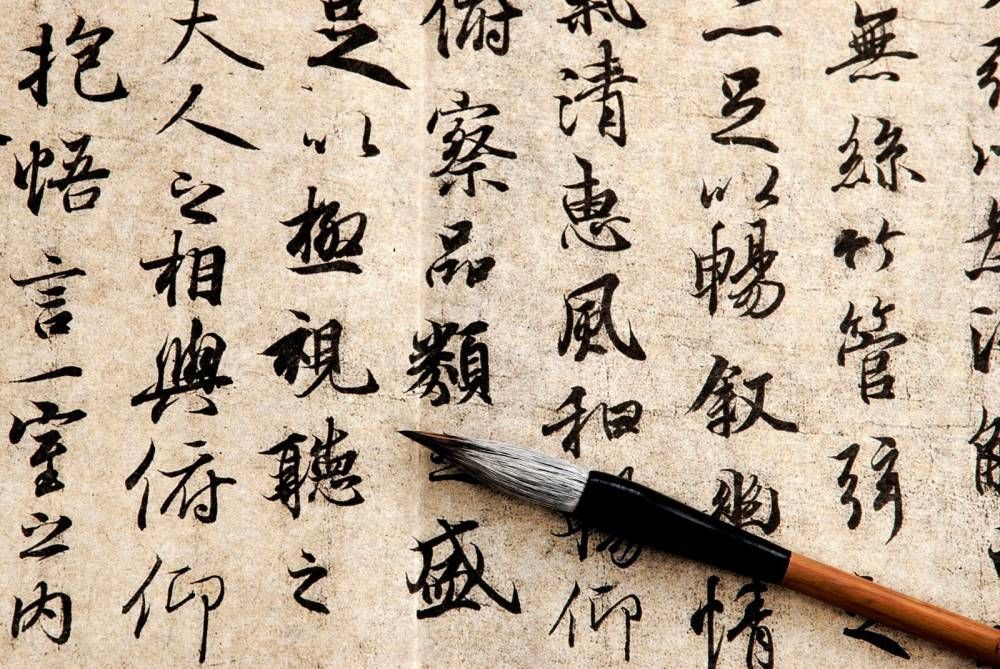 無絲竹管弦之
足以暢叙幽情
氣清惠風和暢仰
俯察品類之盛
足以極視聽之
人之相與俯仰
抱悟言一室之內